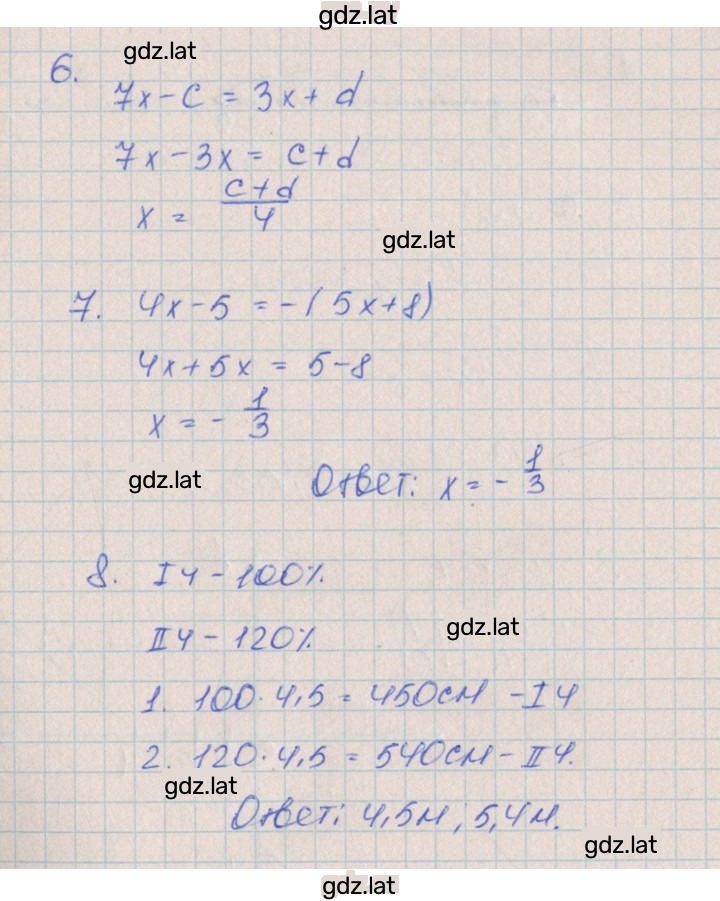 gdz.lat
gdz.lat
6.
7x - c = 3x + d
7x - 3x = c + d
x = (c + d)/4
gdz.lat
7. 4x - 5 = -(5x + 8)
4x + 5x = 5 - 8
x = - 1/3
gdz.lat
Ответ: x = - 1/3
8. I ч - 100%
gdz.lat
II ч - 120%
1. 100 · 4,5 = 450см - I ч
2. 120 · 4,5 = 540см - II ч.
gdz.lat
Ответ: 4,5м; 5,4м.
gdz.lat
gdz.lat